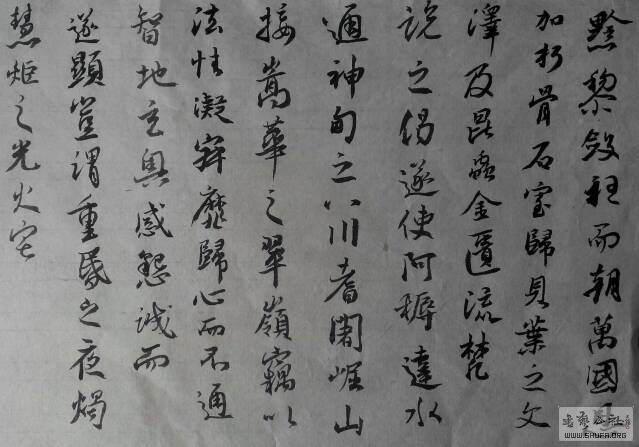 黔黎斂衽而朝萬國
加朽骨石室歸貝葉之文
澤及昆蟲金匱流梵
說之偈遂使阿耨達水
通神甸之八川耆闍崛山
接嵩華之翠嶺竊以
法性凝寂靡歸心而不通
智地玄奧感懇誠而
遂顯豈謂重昬之夜燭
慧炬之光火宅
WWW.SHUFA.ORG